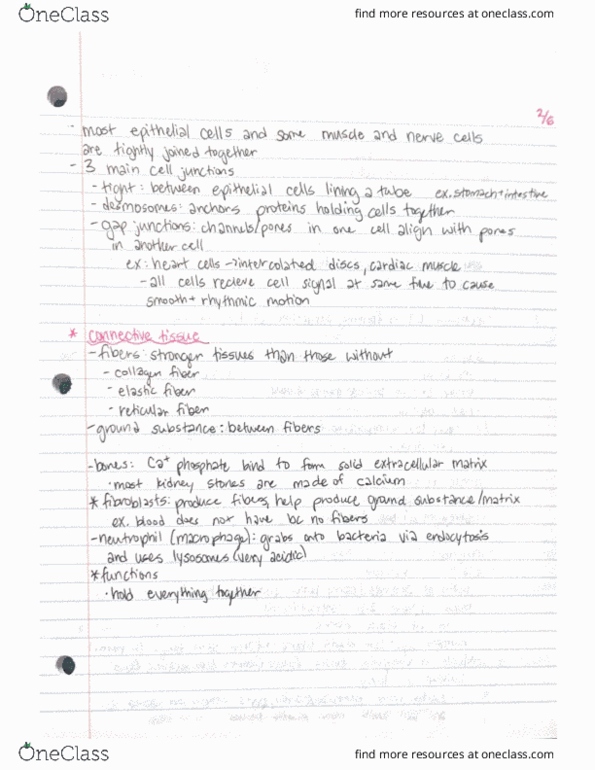 OneClass
find more resources at oneclass.com
2/6
· most epithelial cells and some muscle and nerve cells
are tightly joined together
- 3 main cell junctions
- tight: between epithelial cells lining a tube ex. stomach + intestine
- desmosomes: anchors proteins holding cells together
- gap junctions: channels/pores in one cell align with pores
in another cell
ex: heart cells → intercolated discs, cardiac muscle
- all cells recieve cell signal at same time to cause
smooth + rhythmic motion
* connective tissue
- fibers: stronger tissues than those without
- collagen fiber
- elastic fiber
- reticular fiber
- ground substance: between fibers
- bones: Ca+ phosphate bind to form solid extracellular matrix
· most kidney stones are made of calcium
* fibroblasts: produce fibers, help produce ground substance/matrix
ex. blood does not have bc no fibers
- neutrophil (macrophage): grabs onto bacteria via endocytosis
and uses lysosomes (very acidic)
* functions
· hold everything together
OneClass
find more resources at oneclass.com